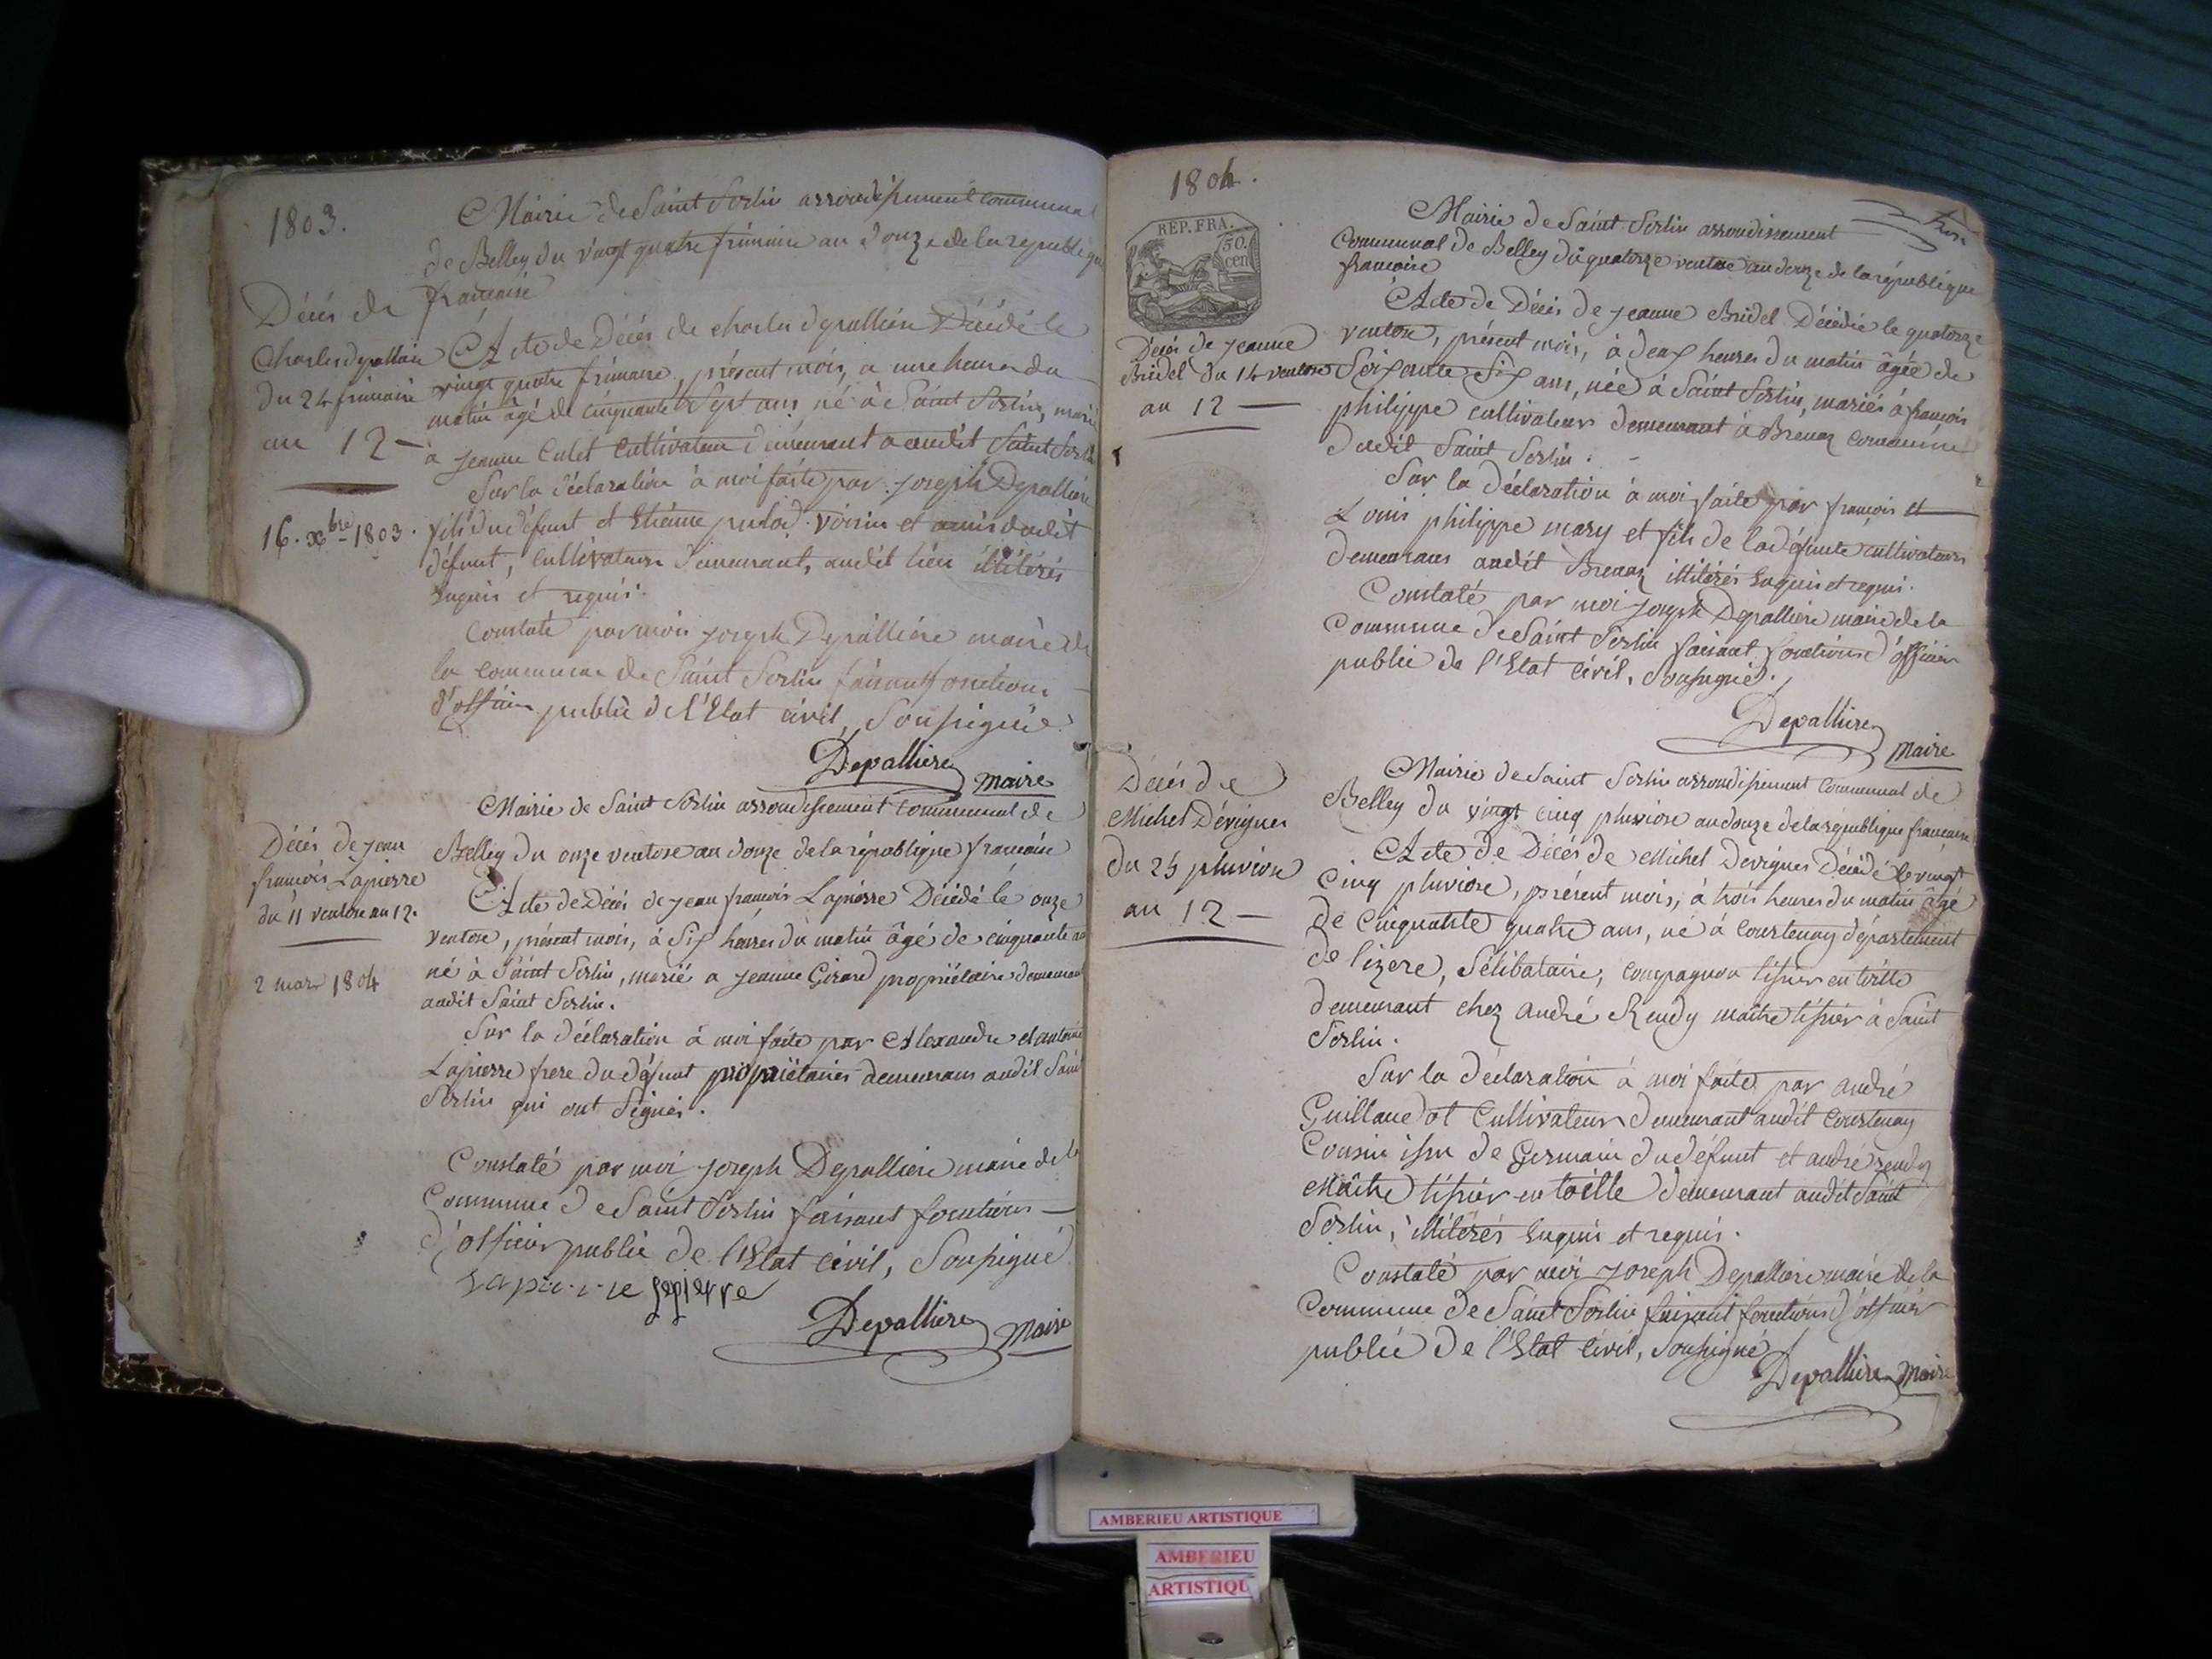 1803.
Mairie de Saint Sorlin arrondissement communal
de Belley du vingt quatre frimaire an douze de la republique
francaise
Décés de
Charles depallière
du 24 frimaire
an 12 -
16. Xbre 1803.
Acte de Décés de charles depallière Décédé le
vingt quatre frimaire, présent mois, a une heure du
matin âgé de cinquante sept ans né à Saint Sorlin, marié
à jeanne Culet Cultivateur demeurant a audit Saint Sorlin
Sur la déclaration à moi faite par joseph Depallière
fils du défunt et Etienne voisin et amis dudit
défunt, Cultivateurs demeurant, audit lieu illitérés
Enquis et requis.
Constaté par moi joseph Depallière maire de
la commune de Saint Sorlin faisant fonctions
d'officier public de l'Etat civil, Soussigné
Depalliere maire
Décés de jean
françois Lapierre
du 11 ventose an 12.
2 mars 1804
Mairie de Saint Sorlin arrondissement communal de
Belley du onze ventose an douze de la république francaise
Acte de Décés de jean françois Lapierre Décédé le onze
ventose, présent mois, à Six heures du matin âgé de cinquante ans
né à Saint Sorlin, marié a jeanne Girard propriétaire demeurant
audit Saint Sorlin.
Sur la déclaration à moi faite par Alexandre et antoine
Lapierre frere du défunt propriétaires demeurans audit Saint
Sorlin qui ont Signés.
Constaté par moi joseph Depalliere maire de la
Commune de Saint Sorlin faisant fonctions
d'officier public de l'Etat civil, Soussigné
lapierre
Depalliere maire
1804.
REP. FRA.
50.
cen
Mairie de Saint Sorlin arrondissement
Communal de Belley du quatorze ventose an douze de la république
francaise
Décés de jeanne
Bridel du 14 ventose
an 12
Acte de Décés de jeanne Bridel Décédée le quatorze
ventose, présent mois, à deux heures du matin âgée de
Soixante Six ans, née à Saint Sorlin, mariée à françois
philippe cultivateur demeurant à Brenaz commune
dudit Saint Sorlin.
Sur la déclaration à moi faite par françois et
Louis philippe mary et fils de la défunte cultivateurs
demeurans audit Brenaz illitérés Enquis et requis.
Constaté par moi joseph Depalliere maire de la
Commune de Saint Sorlin faisant fonctions d'officier
public de l'Etat civil, Soussigné.
Depalliere maire
Décés de
Michel Devignes
du 25 pluviose
an 12
Mairie de Saint Sorlin arrondissement Communal de
Belley du vingt cinq pluviose an douze de la république francaise
Acte de Décés de Michel Devignes Décédé le vingt
cinq pluviose, présent mois, à trois heures du matin âgé
de Cinquante quatre ans, né à Courtenay département
de l'izere, Sélibataire, compagnon tissier en toille
demeurant chez andré Rendy maître tissier à Saint
Sorlin.
Sur la déclaration à moi faite par andré
Cultivateur demeurant audit Courtenay
Cousin issu de Germain du défunt et andré rendy
Maître tissier en toille demeurant audit Saint
Sorlin, illitérés Enquis et requis.
Constaté par moi joseph Depalliere maire de la
Commune de Saint Sorlin faisant fonctions d'officier
public de l'Etat civil, Soussigné
Depalliere maire
AMBERIEU ARTISTIQUE
AMBERIEU
ARTISTIQU